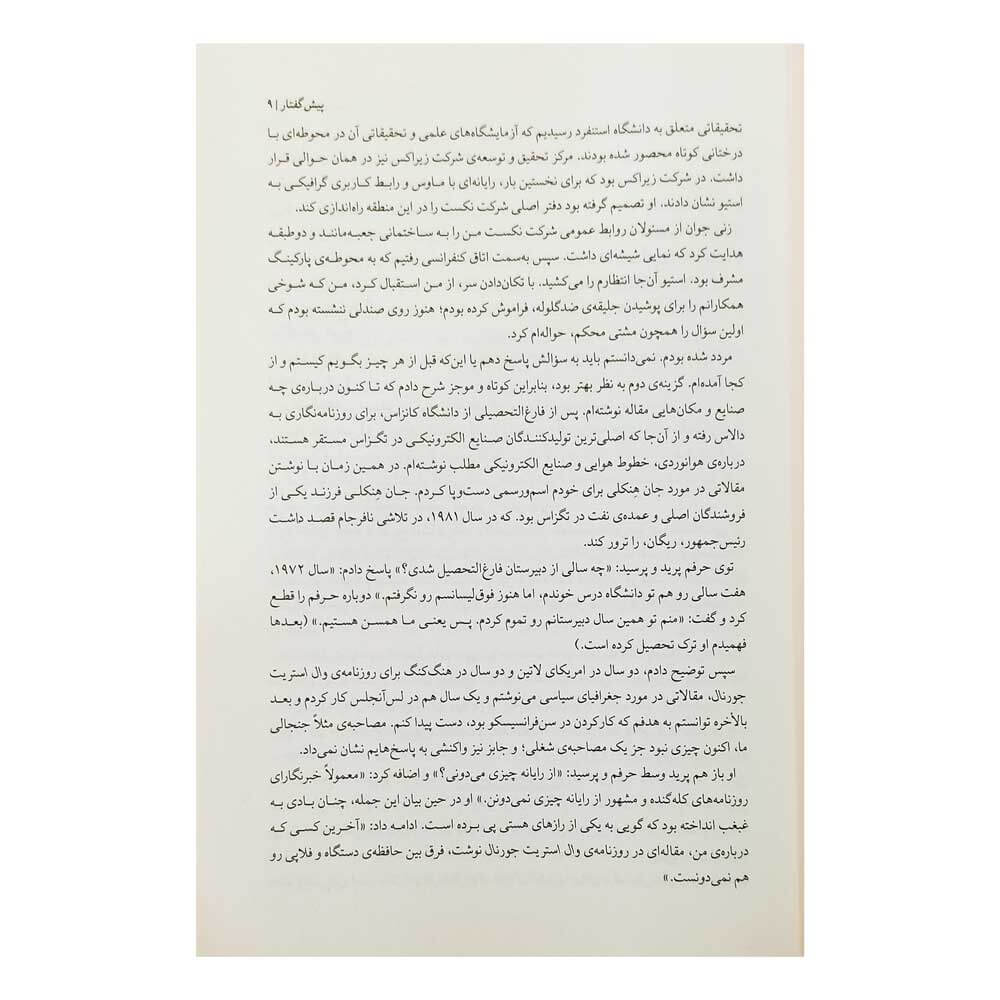 پیش‌گفتار | ۹
تحقیقاتی متعلق به دانشگاه استنفرد رسیدیم که آزمایشگاه‌های علمی و تحقیقاتی آن در محوطه‌ای با
درختانی کوتاه محصور شده بودند. مرکز تحقیق و توسعه‌ی شرکت زیراکس نیز در همان حوالی قرار
داشت. در شرکت زیراکس بود که برای نخستین بار، رایانه‌ای با ماوس و رابط کاربری گرافیکی به
استیو نشان دادند. او تصمیم گرفته بود دفتر اصلی شرکت نکست را در این منطقه راه‌اندازی کند.
زنی جوان از مسئولان روابط عمومی شرکت نکست من را به ساختمانی جعبه‌مانند و دوطبقه
هدایت کرد که نمایی شیشه‌ای داشت. سپس به‌سمت اتاق کنفرانسی رفتیم که به محوطه‌ی پارکینگ
مشرف بود. استیو آن‌جا انتظارم را می‌کشید. با تکان‌دادن سر، از من استقبال کرد، من که شوخی
همکارانم را برای پوشیدن جلیقه‌ی ضدگلوله، فراموش کرده بودم؛ هنوز روی صندلی ننشسته بودم که
اولین سؤال را همچون مشتی محکم، حواله‌ام کرد.
مردد شده بودم. نمی‌دانستم باید به سؤالش پاسخ دهم یا این‌که قبل از هر چیز بگویم کیستم و از
کجا آمده‌ام. گزینه‌ی دوم به نظر بهتر بود، بنابراین کوتاه و موجز شرح دادم که تا کنون درباره‌ی چه
صنایع و مکان‌هایی مقاله نوشته‌ام. پس از فارغ‌التحصیلی از دانشگاه کانزاس، برای روزنامه‌نگاری به
دالاس رفته و از آن‌جا که اصلی‌ترین تولیدکنندگان صنایع الکترونیکی در تگزاس مستقر هستند،
درباره‌ی هوانوردی، خطوط هوایی و صنایع الکترونیکی مطلب نوشته‌ام. در همین زمان با نوشتن
مقالاتی در مورد جان هِنکلی برای خودم اسم‌ورسمی دست‌وپا کردم. جان هِنکلی فرزند یکی از
فروشندگان اصلی و عمده‌ی نفت در تگزاس بود. که در سال ۱۹۸۱، در تلاشی نافرجام قصد داشت
رئیس‌جمهور، ریگان، را ترور کند.
توی حرفم پرید و پرسید: «چه سالی از دبیرستان فارغ‌التحصیل شدی؟» پاسخ دادم: «سال ۱۹۷۲،
هفت سالی رو هم تو دانشگاه درس خوندم، اما هنوز فوق‌لیسانسم رو نگرفتم.» دوباره حرفم را قطع
کرد و گفت: «منم تو همین سال دبیرستانم رو تموم کردم. پس یعنی ما همسن هستیم.» (بعدها
فهمیدم او ترک تحصیل کرده است.)
سپس توضیح دادم، دو سال در امریکای لاتین و دو سال در هنگ‌کنگ برای روزنامه‌ی وال استریت
جورنال، مقالاتی در مورد جغرافیای سیاسی می‌نوشتم و یک سال هم در لس‌آنجلس کار کردم و بعد
بالأخره توانستم به هدفم که کارکردن در سن‌فرانسیسکو بود، دست پیدا کنم. مصاحبه‌ی مثلاً جنجالی
ما، اکنون چیزی نبود جز یک مصاحبه‌ی شغلی؛ و جابز نیز واکنشی به پاسخ‌هایم نشان نمی‌داد.
او باز هم پرید وسط حرفم و پرسید: «از رایانه چیزی می‌دونی؟» و اضافه کرد: «معمولاً خبرنگارای
روزنامه‌های کله‌گنده و مشهور از رایانه چیزی نمی‌دونن.» او در حین بیان این جمله، چنان بادی به
غبغب انداخته بود که گویی به یکی از رازهای هستی پی برده است. ادامه داد: «آخرین کسی که
درباره‌ی من، مقاله‌ای در روزنامه‌ی وال استریت جورنال نوشت، فرق بین حافظه‌ی دستگاه و فلاپی رو
هم نمی‌دونست.»